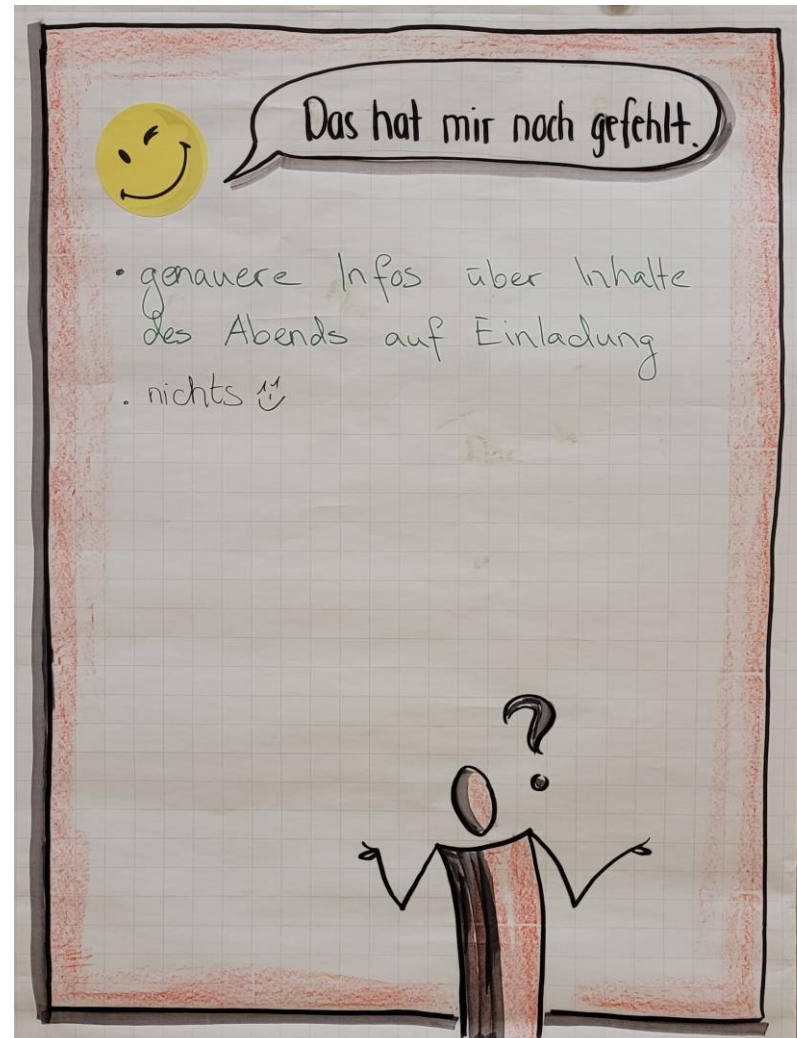 Das hat mir noch gefehlt.
• genauere Infos über Inhalte
des Abends auf Einladung
• nichts
?